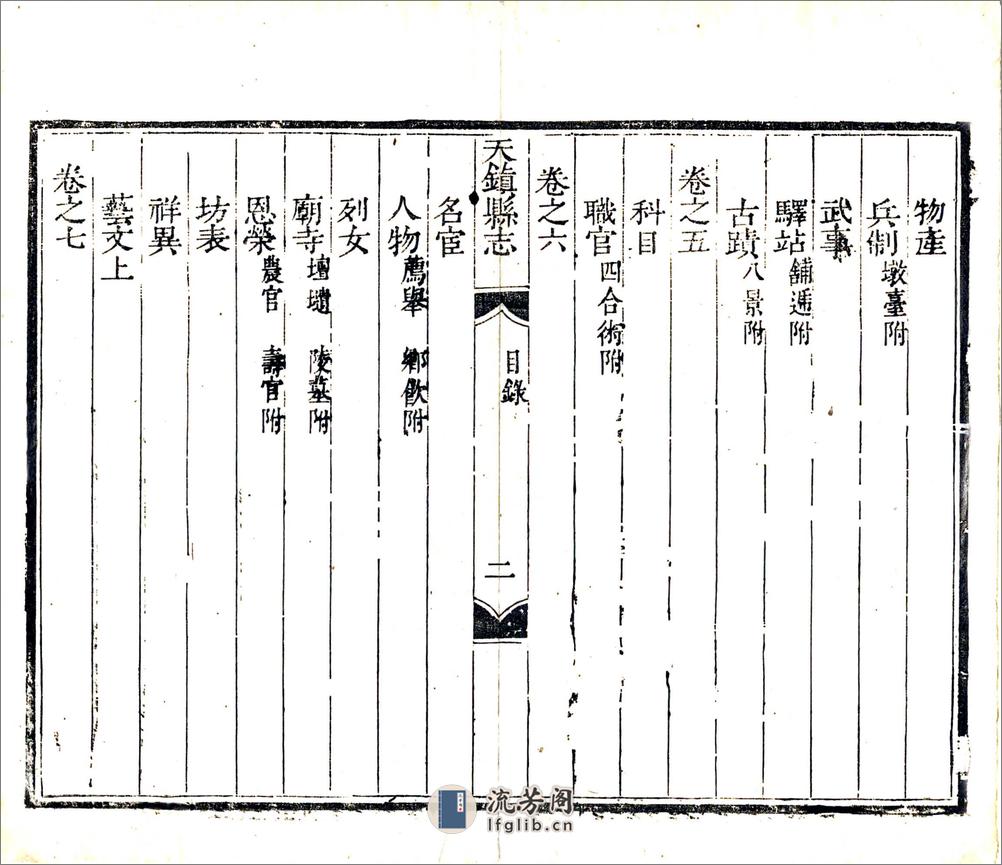 物產
兵制 墩臺附
武事
驛站 舖遞附
古蹟 八景附
卷之五
科目
職官 四合術附
卷之六
天鎮縣志
目錄
二
名宦
人物 薦舉 鄉飲附
列女
廟寺 壇壝 陵墓附
恩榮 農官 壽官附
坊表
祥異
藝文上
卷之七
流芳阁
lfglib.cn